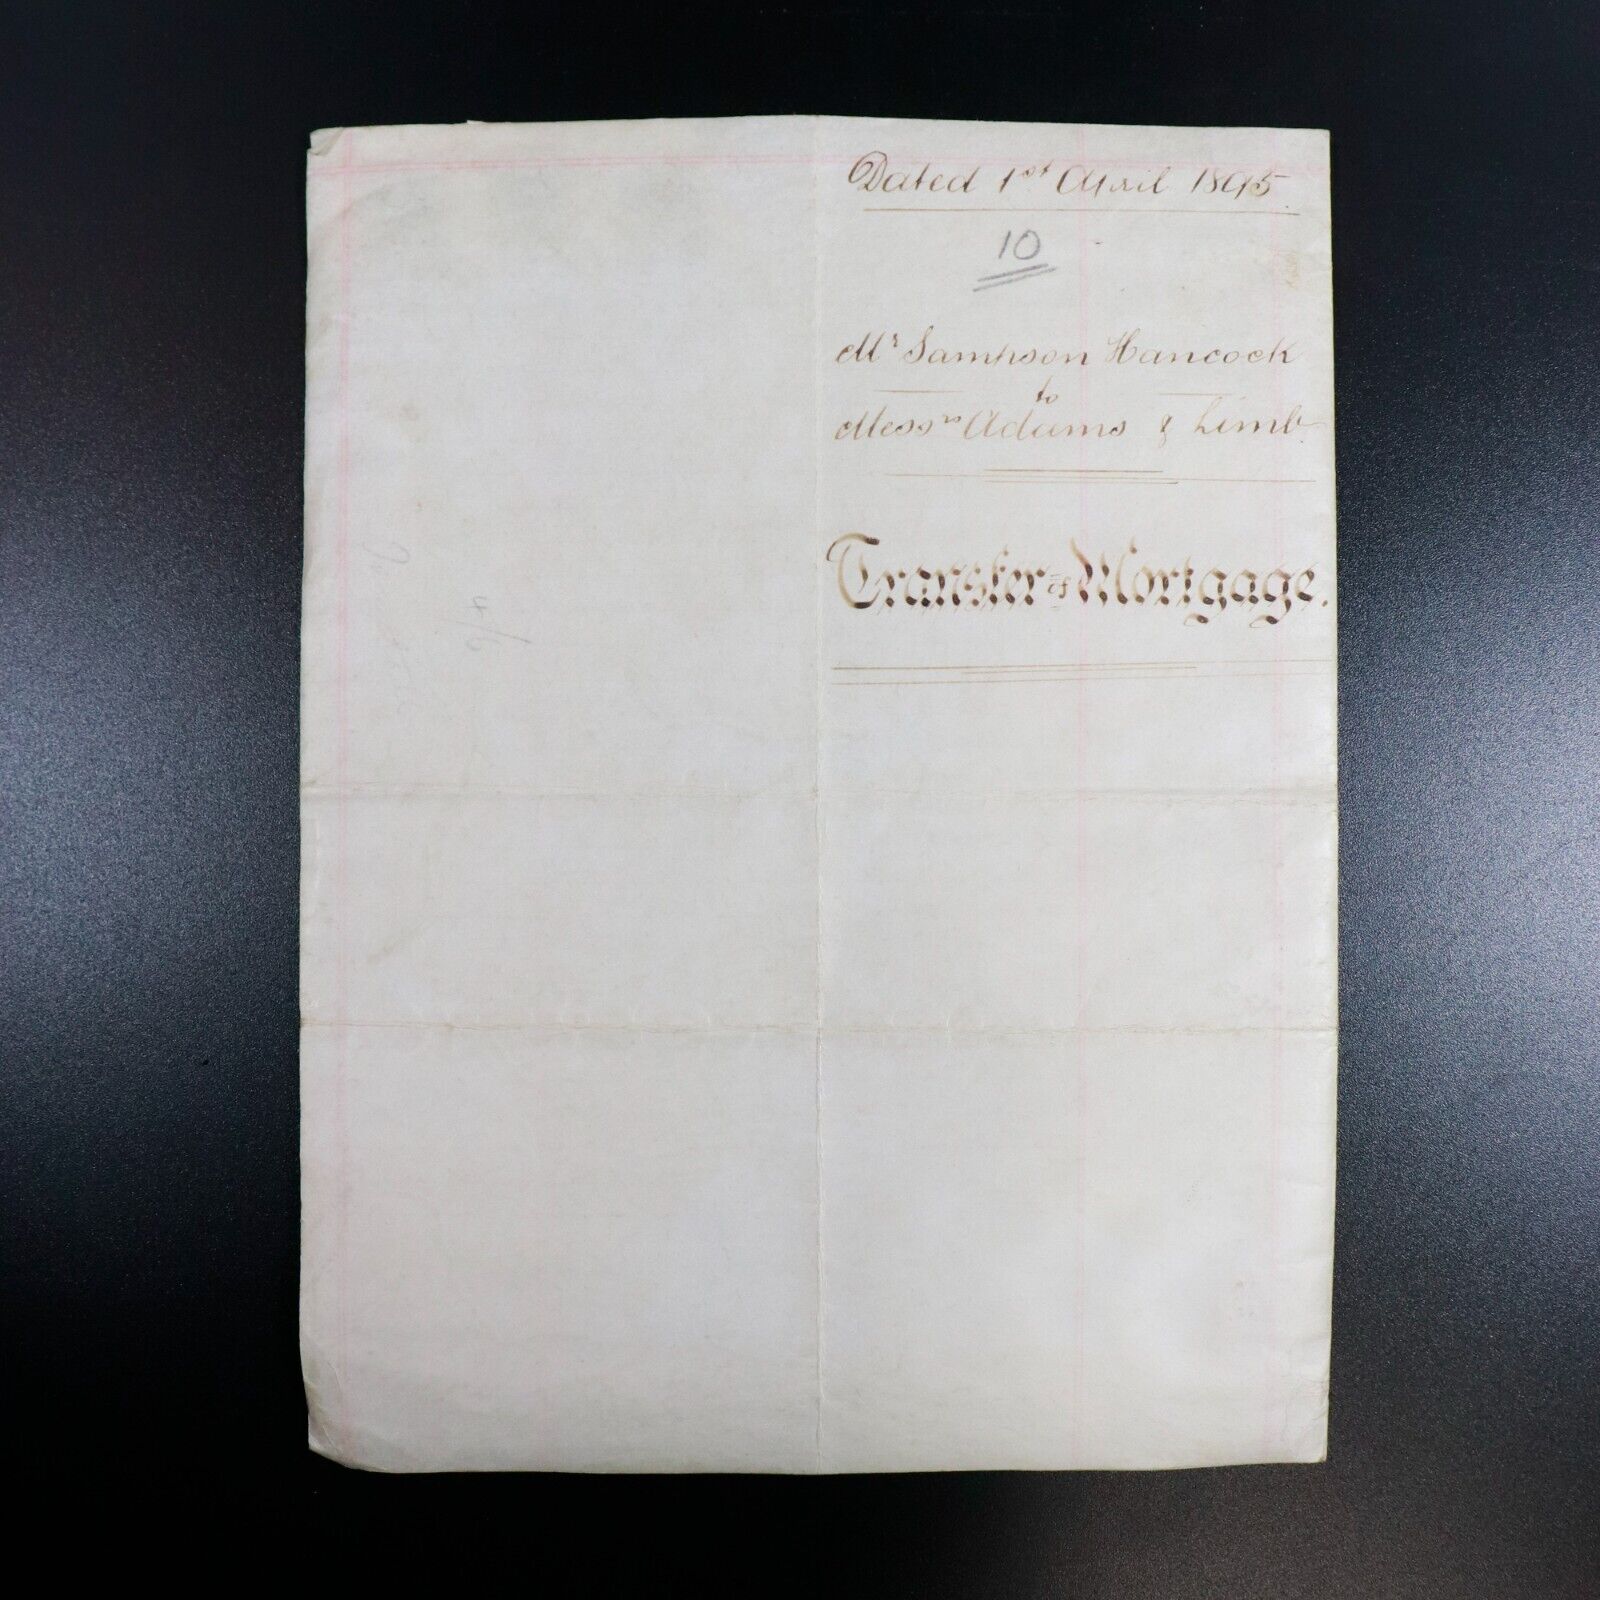 Dated 1st April 1895.
10
Mr Sampson Hancock
to
Messrs Adams & Limb
Transfer of Mortgage.
4/6